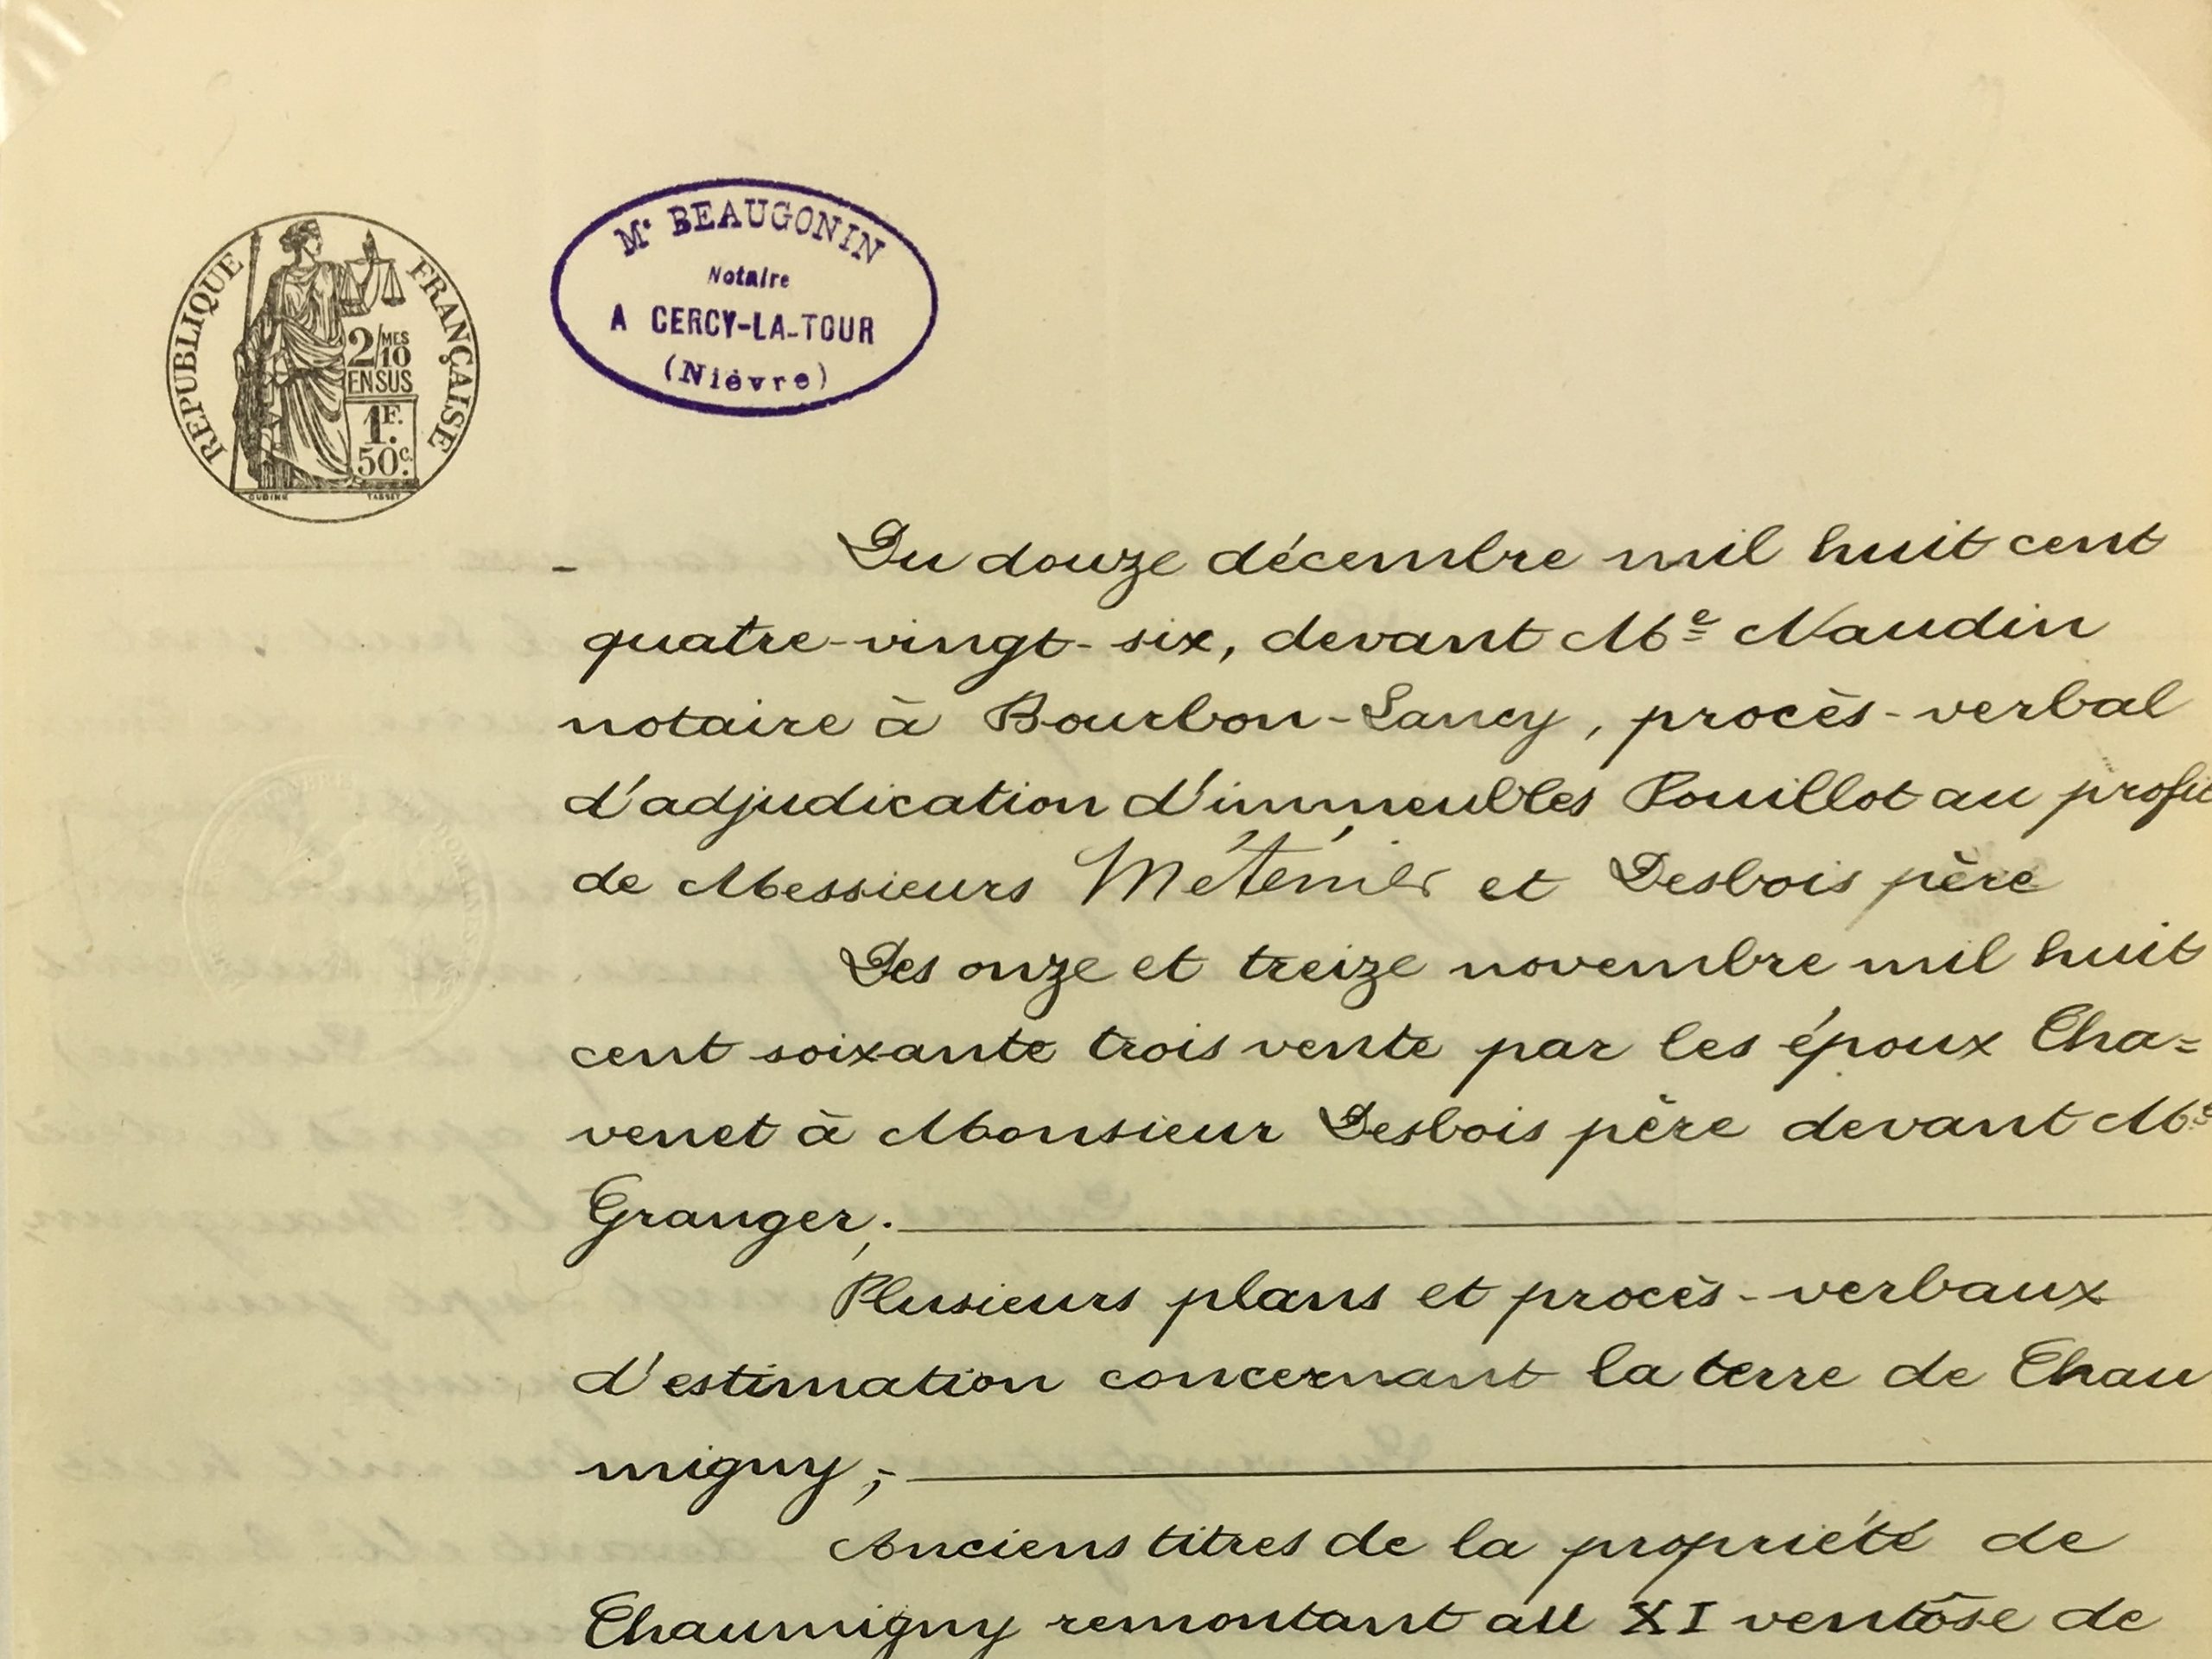 RÉPUBLIQUE FRANÇAISE
2/MES 10
EN SUS
1F.
50c.
OUDINÉ TASSET
Me BEAUGONIN
Notaire
A CERCY-LA-TOUR
(Nièvre)
- Du douze décembre mil huit cent
quatre-vingt-six, devant Me Naudin
notaire à Bourbon-Lancy, procès-verbal
d'adjudication d'immeubles Pouillot au profit
de Messieurs Méténier et Desbois père
Des onze et treize novembre mil huit
cent soixante trois vente par les époux Cha=
venet à Monsieur Desbois père devant Me
Granger;
Plusieurs plans et procès-verbaux
d'estimation concernant la terre de Chau
migny;
Anciens titres de la propriété de
Chaumigny remontant au XI ventôse de